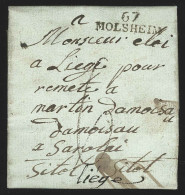 a
67
MOLSHEIM
Monsieur eloi
a Liege pour
remete a
martin damoiseau
damoisau
a Sarolai
Sito Sitot
Liege